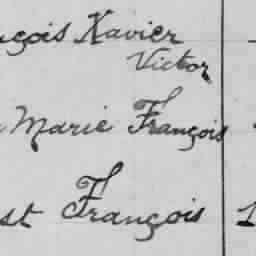 nçois Xavier
Victor
Marie François
st François 1